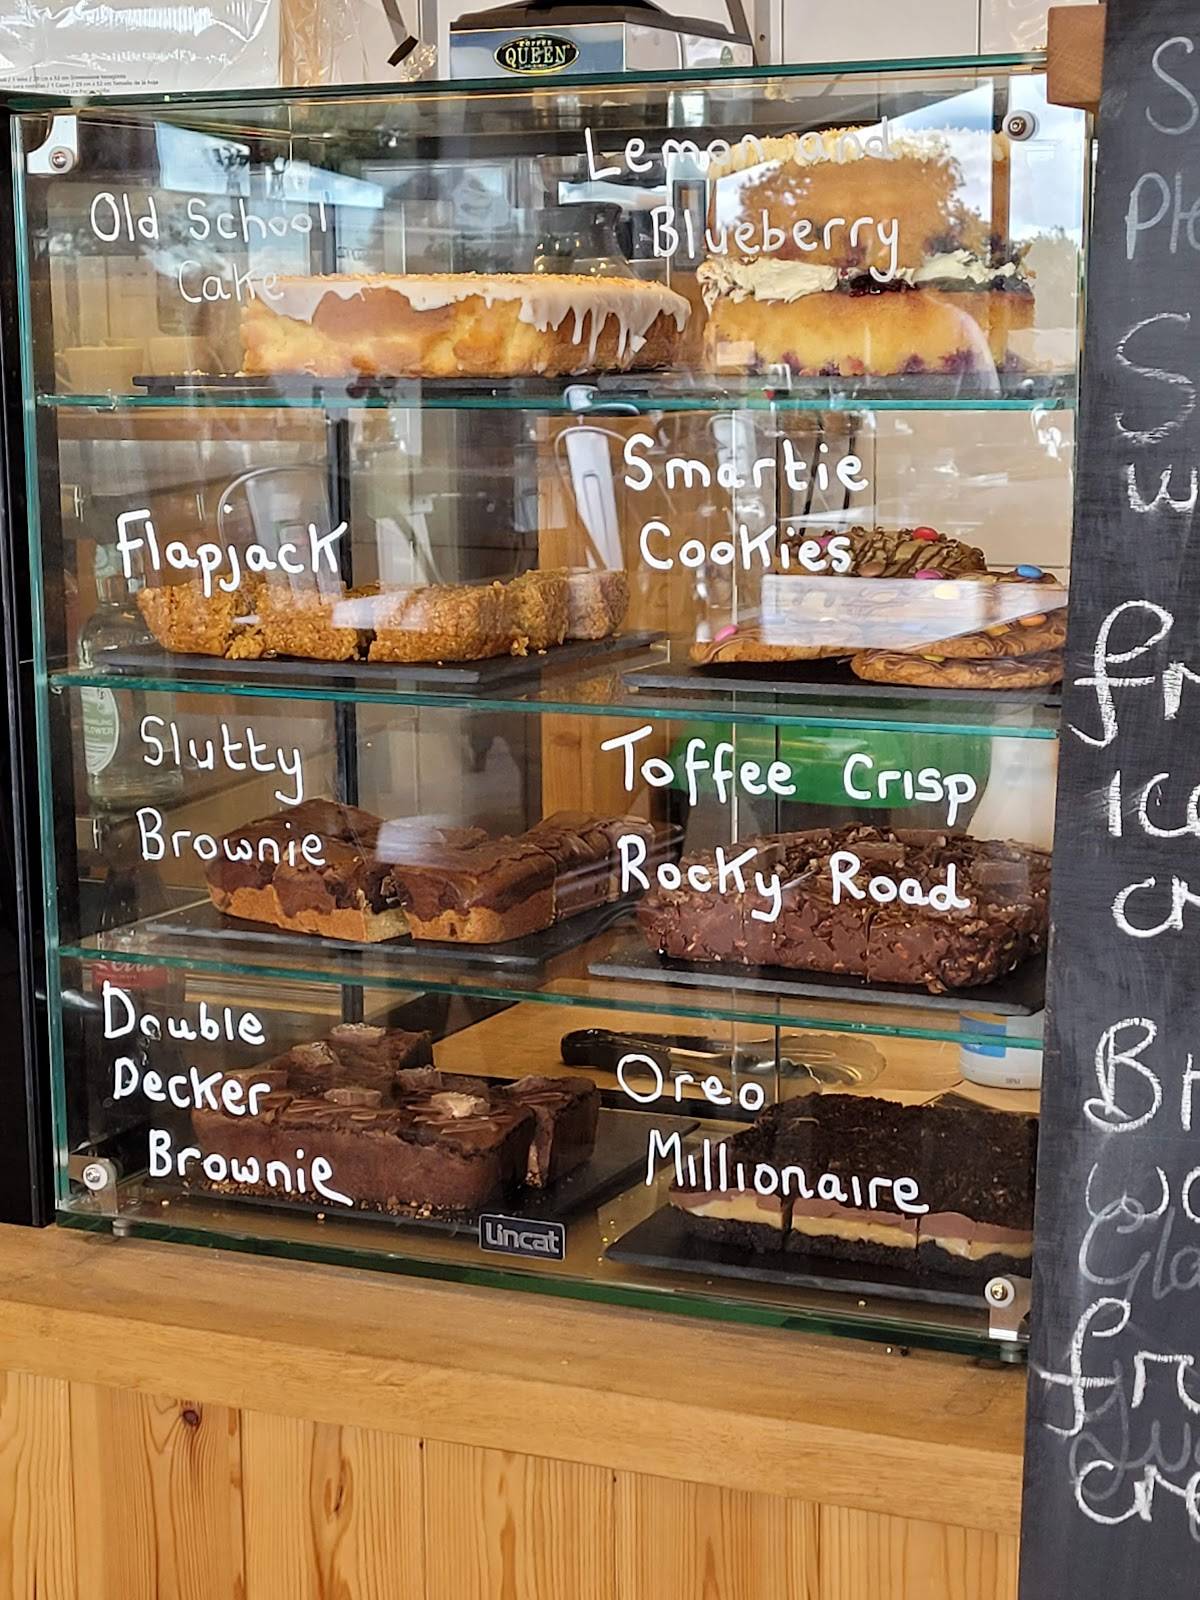 COFFEE
QUEEN
Old School
Cake
Lemon and
Blueberry
Flapjack
Smartie
Cookies
Slutty
Brownie
Toffee Crisp
Rocky Road
Double
Decker
Brownie
Oreo
Millionaire
Lincat